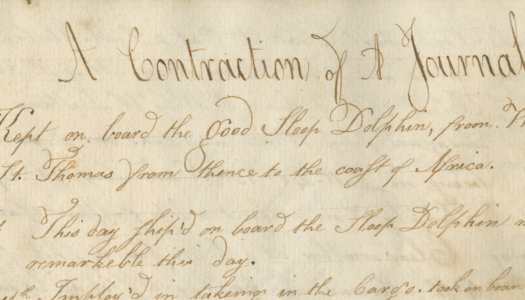 A Contraction of A Journal
Kept on board the good Sloop Dolphin, from
St. Thomas from thence to the coast of Africa.
This day ship'd on board the Sloop Dolphin
remarkeble this day.
Imploy'd in takeing in the Cargo. took on board